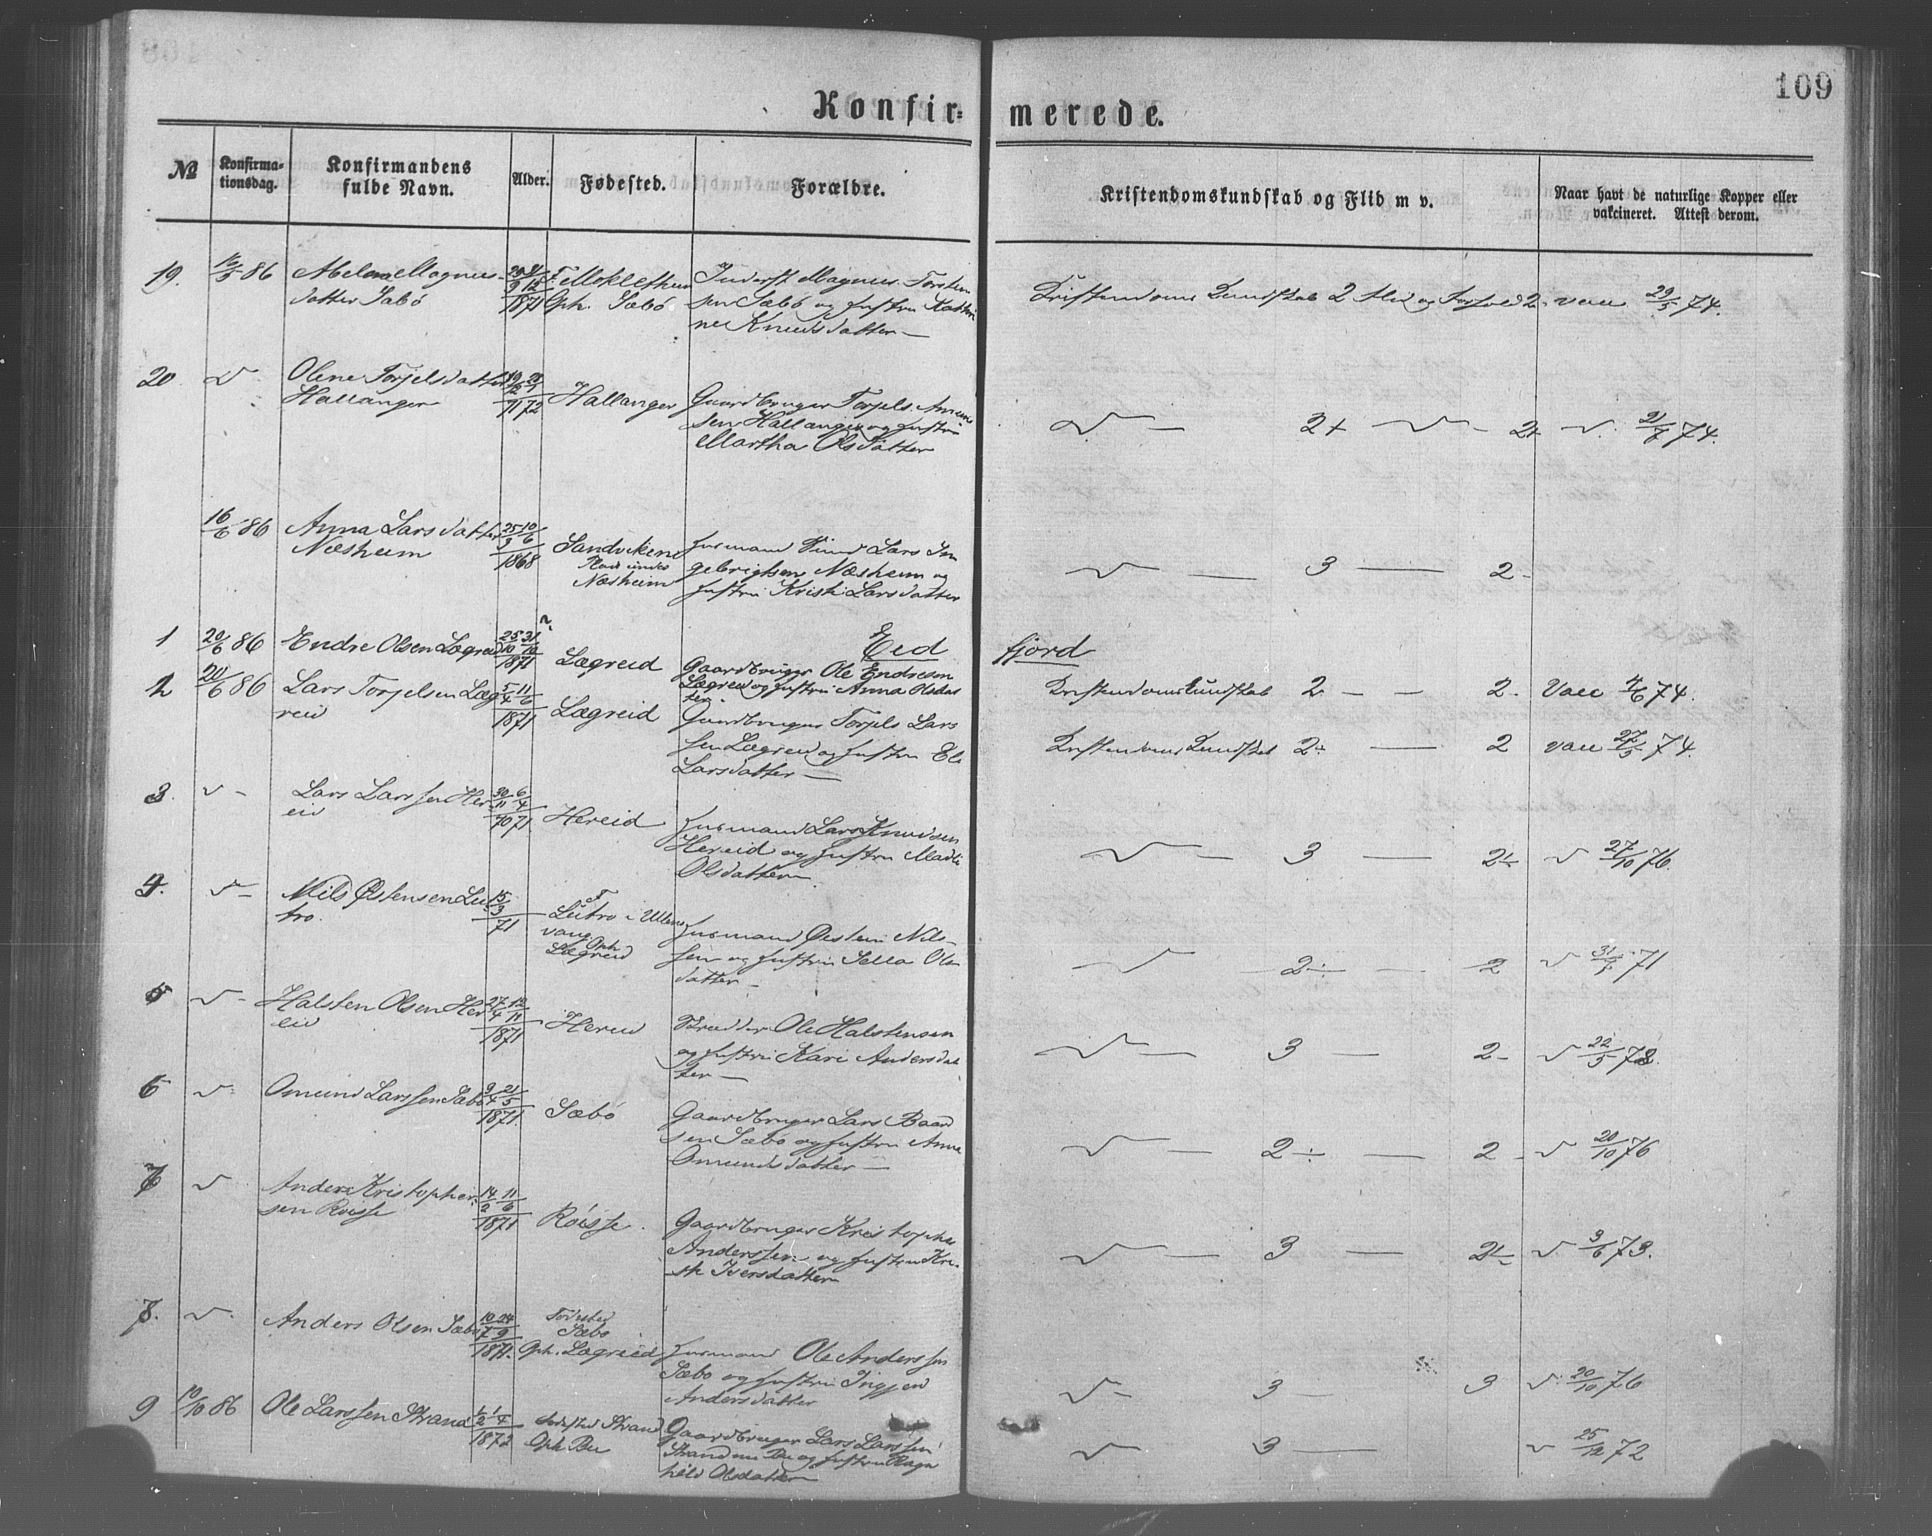 109
Konfir=
merede.
№
Konfirma=
tionsdag.
Konfirmandens
fulde Navn.
Alder.
Fødested.
Forældre.
Kristendomskundskab og Flid m v.
Naar havt de naturlige Kopper eller
vakcineret. Attest derom.
19.
86
Magnus
datter Sæbø
1871
Oph. Sæbø
Inderst Magnus Torstein
sen Sæbø og Hustru
Knudsdatter —
Kristendoms Kundskab 2 Flid og Forhold 2. vacc 29/5 74.
20
Olene Torjelsdatter
Hallanger
71 72
Hallanger
Gaardbruger Torjels
sen Hallanger og Hustru
Martha Olsdatter
2+ 2+ 74.
16/6 86
Anna Larsdatter
Næsheim
25/9 10/6
1868
Sandvikene
Plads under
Næsheim
Husmand Lars In
gebrigtsen Næsheim og
Hustru Kristi Larsdatter
3 — 2-
Eid
fjord
1
20/6 86
Endre Olsen Lægreid
25/10 31/10
1871
Lægreid
Gaardbruger Ole Endresen
Lægreid og Hustru Anna Olsdat
ter.
Kristendomskundskab 2 — — 2- Vacc 4/6 74.
2
20/6 86
Lars Torjelsen Læg
reid
5/4 11/6
1871
Lægreid
Gaardbruger Torjels Lars
sen Lægreid og Hustru Eli
Larsdatter —
Kristendoms Kundskab 2÷ — 2 vacc 27/5 74.
3.
Lars Larssen Her
eid
30/11 6/4
70 71
Hereid
Husmand Lars Knudsen
Hereid og Hustru
Olsdatter
3 — 2÷ 27/10 76.
4.
Nils Østensen Lu
tro.
15/3
71
F
Lutro i Ullens
vang. Oph
Lægreid
Husmand Østein Nils-
sen og Hustru Sella Ols
datter —
2÷ 2 71
5
Halsten Olsen Her
eid
27/4 12/11
1871
Hereid
Ole Halstensen
og Hustru Kari Andersdat
ter —
3 — 2- 22/5 73.
6
Omund Larssen Sæbø
9/4 21/5
1871.
Sæbø
Gaardbruger Lars Baard
sen Sæbø og Hustru Anna
Omundsdatter —
2÷ — 2 - 20/10 76
7
Anders Kristopher
sen Røisse
14/2 11/6
1871
Røisse.
Gaardbruger Kristopher
Anderssen og Hustru Kri
sti Iversdatter
3 — 2÷ 3/6 73.
8.
Anders Olsen Sæbø
10/7 24/9
1871.
Fødested
Sæbø
Oph. Lægreid
Husmand Ole Anderssen
Sæbø og Hustru Ingjerd
Andersdatter
3 — 3 20/10 76
9
10/10 86
Ole Larssen Strand
1872
Fødested Strand
Oph Bu
Gaardbruger Lars Larssen
Strand nu Bu og Hustru Ragn
hild Olsdatter
3 — 25/12 72